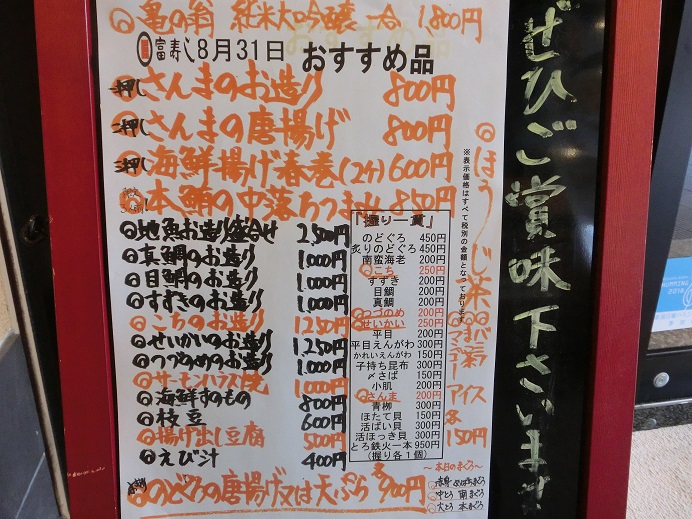 ◎亀の翁 純米大吟醸 一合 1,800円
富寿し8月31日 おすすめ品
一押し さんまのお造り 800円
一押し さんまの唐揚げ 800円
一押し 海鮮揚げ春巻(2ヶ) 600円
本鮪の中落ちつまみ 850円
◎地魚お造り盛合せ 2,500円
◎真鯛のお造り 1,000円
◎目鯛のお造り 1,000円
◎すずきのお造り 1,000円
◎こちのお造り 1250円
◎せいかいのお造り 1250円
◎つづのめのお造り 1,000円
◎サーモンハラス焼 1000円
◎海鮮すのもの 800円
◎枝豆 600円
◎揚げ出し豆腐 500円
◎えび汁 400円
のどぐろの唐揚げ又は天ぷら 各900円
「握り一貫」
のどぐろ 450円
炙りのどぐろ 450円
南蛮海老 200円
こち 250円
すずき 200円
目鯛 200円
真鯛 200円
つづのめ 200円
せいかい 250円
平目 200円
平目えんがわ 300円
かれいえんがわ 150円
子持ち昆布 300円
〆さば 150円
小肌 200円
さんま 200円
青柳 300円
ほたて貝 150円
活ばい貝 300円
活ほっき貝 300円
とろ鉄火一本 950円
(握り各1個)
※表示価格はすべて税別の金額となっております
◎ほうじ茶
バニラ
マンゴー
アイス
各150円
~本日のまぐろ~
赤身 めばちまぐろ
中とろ 南まぐろ
大とろ 本まぐろ
ぜひご賞味下さいませ